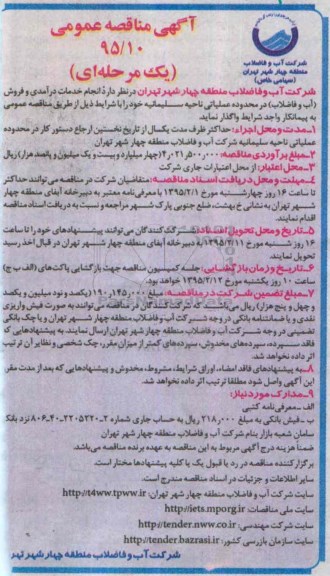 آگهی مناقصه عمومی
۹۵/۱۰
(یک مرحله‌ای)
شرکت آب و فاضلاب
منطقه چهار شهر تهران
(سهامی خاص)
شرکت آب و فاضلاب منطقه چهار شهر تهران در نظر دارد انجام خدمات درآمدی و فروش
(آب و فاضلاب) در محدوده عملیاتی ناحیه سلیمانیه خود را با شرایط ذیل از طریق مناقصه عمومی
به پیمانکار واجد شرایط واگذار نماید.
۱-مدت و محل اجراء: حداکثر ظرف مدت یکسال از تاریخ نخستین ارجاع دستور کار در محدوده
عملیاتی ناحیه سلیمانیه شرکت آب و فاضلاب منطقه چهار شهر تهران
۲-مبلغ برآوردی مناقصه: ۴,۰۲۱,۵۰۰,۰۰۰ (چهار میلیارد و بیست و یک میلیون و پانصد هزار) ریال
۳-محل اعتبار: از محل اعتبارات جاری شرکت
۴-مهلت و محل دریافت اسناد مناقصه: متقاضیان شرکت در مناقصه می توانند حداکثر
تا ساعت ۱۶ روز چهارشنبه مورخ ۱۳۹۵/۲/۱ با معرفی‌نامه معتبر به دبیرخانه آبفای منطقه چهار
تهران به نشانی خ بهشت، ضلع جنوبی پارک شهر مراجعه و نسبت به دریافت اسناد مناقصه
اقدام نمایند.
۵-تاریخ و محل تحویل اسناد: شرکت کنندگان می توانند پیشنهادهای خود را تا ساعت
۱۶ روز شنبه مورخ ۱۳۹۵/۲/۱۱ به دبیرخانه آبفای منطقه چهار شهر تهران در قبال اخذ رسید
تحویل نمایند.
۶-تاریخ و زمان بازگشایی: جلسه کمیسیون مناقصه جهت بازگشایی پاکت‌های (الف ب ج)
ساعت ۱۰ روز یکشنبه مورخ ۱۳۹۵/۲/۱۲ خواهد بود.
۷-مبلغ تضمین شرکت در مناقصه: مبلغ ۱۹۰,۱۴۵,۰۰۰ (یکصد و نود میلیون و یکصد
و چهل و پنج هزار) ریال می‌باشد کنندگان در مناقصه می توانند به صورت فیش واریزی
نقدی و یا ضمانتنامه بانکی در وجه شرکت آب و فاضلاب منطقه چهار شهر تهران و یا چک بانکی
تضمینی در وجه شرکت آب و فاضلاب منطقه چهار شهر تهران ارسال نمایند. به پیشنهادهایی که
فاقد سپرده، سپرده‌های مخدوش، سپرده‌های کمتر از میزان مقرر، چک شخصی و نظایر آن ترتیب
اثر داده نخواهد شد.
۸-به پیشنهادهای فاقد امضاء، اوراق شرایط، مشروط، مخدوش و پیشنهادهایی که بعد از مدت مقرر
این آگهی واصل شود مطلقا ترتیب اثر داده نخواهد شد.
۹-مدارک مورد نیاز:
الف-معرفی‌نامه کتبی
ب-فیش بانکی به مبلغ ۲۱۸,۰۰۰ ریال به حساب جاری شماره ۲-۲۲۰۵۲۲۰-۴۰-۸۰۶ نزد بانک
سامان شعبه بازار بنام شرکت آب و فاضلاب منطقه چهار شهر تهران
ضمنا هزینه درج آگهی مربوط به این مناقصه به عهده برنده مناقصه می‌باشد.
برگزار کننده مناقصه در رد یا قبول یک یا کلیه پیشنهادها مختار است.
سایر اطلاعات و جزئیات در اسناد مناقصه مندرج است.
سایت شرکت آب و فاضلاب منطقه چهار شهر تهران: http://t4ww.tpww.ir
سایت ملی مناقصات: http://iets.mporg.ir
سایت شرکت مهندسی: http://tender.nww.co.ir
سایت سازمان بازرسی کشور: http://tender.bazrasi.ir
شرکت آب و فاضلاب منطقه چهار شهر تهران